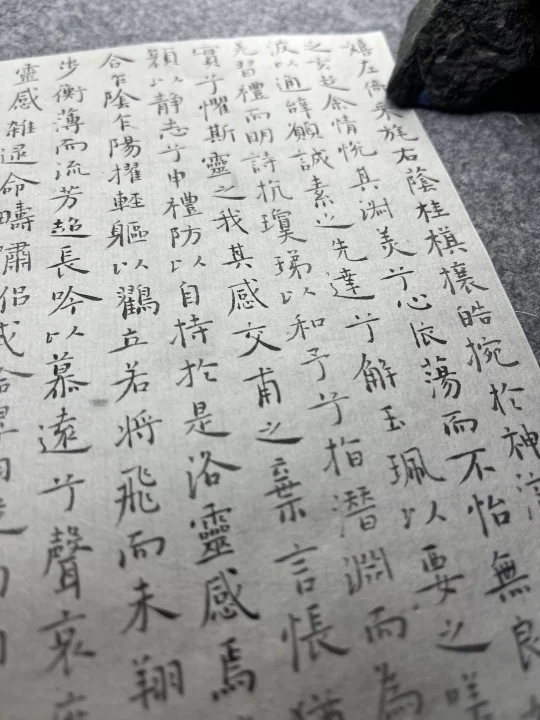 嬉左倚采旄右蔭桂棋攘皓捥於神滸
之玄芝余情悅其淑美兮心依蕩而不怡無良
波以通辭願誠素之先達兮解玉珮以要之嗟
羌習禮而明詩抗瓊珶以和予兮指潛淵而為
實兮懼斯靈之我其感交甫之棄言悵猶
顏以静志兮申禮防以自持於是洛靈感焉
合乍陰乍陽擢輕軀以鸛立若將飛而未翔
步衡薄而流芳超長吟以慕遠兮聲哀
靈感雜遝命疇嘯侣或